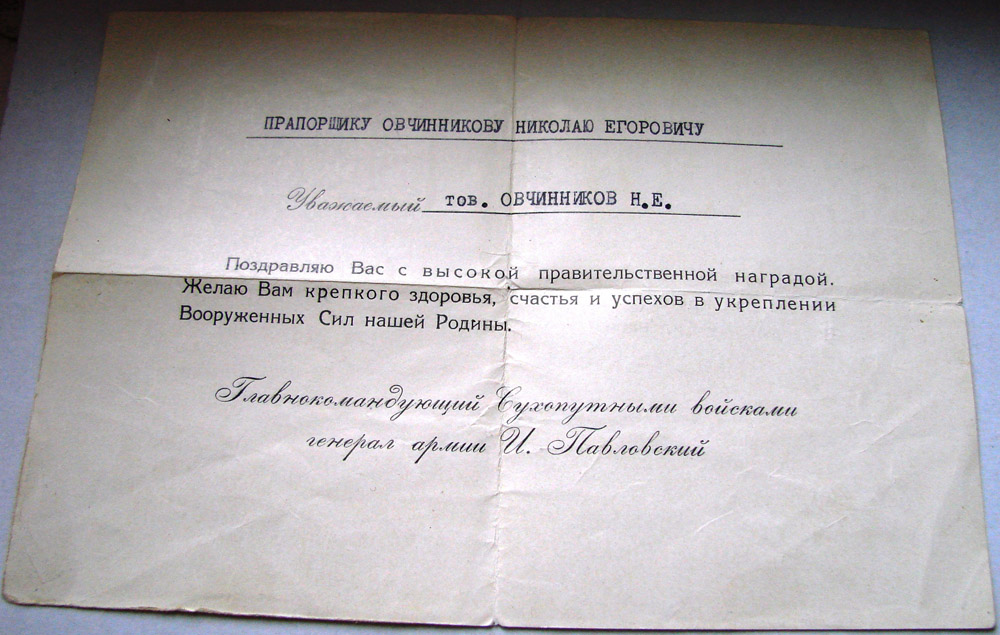 ПРАПОРЩИКУ ОВЧИННИКОВУ НИКОЛАЮ ЕГОРОВИЧУ
Уважаемый тов. ОВЧИННИКОВ Н.Е.
Поздравляю Вас с высокой правительственной наградой.
Желаю Вам крепкого здоровья, счастья и успехов в укреплении
Вооруженных Сил нашей Родины.
Главнокомандующий Сухопутными войсками
генерал армии И. Павловский